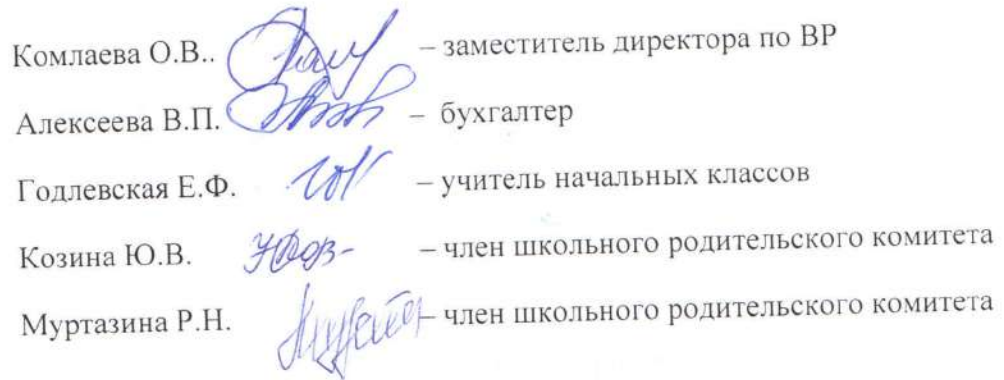 Комлаева О.В.. – заместитель директора по ВР
Алексеева В.П. – бухгалтер
Годлевская Е.Ф. – учитель начальных классов
Козина Ю.В. – член школьного родительского комитета
Муртазина Р.Н. – член школьного родительского комитета